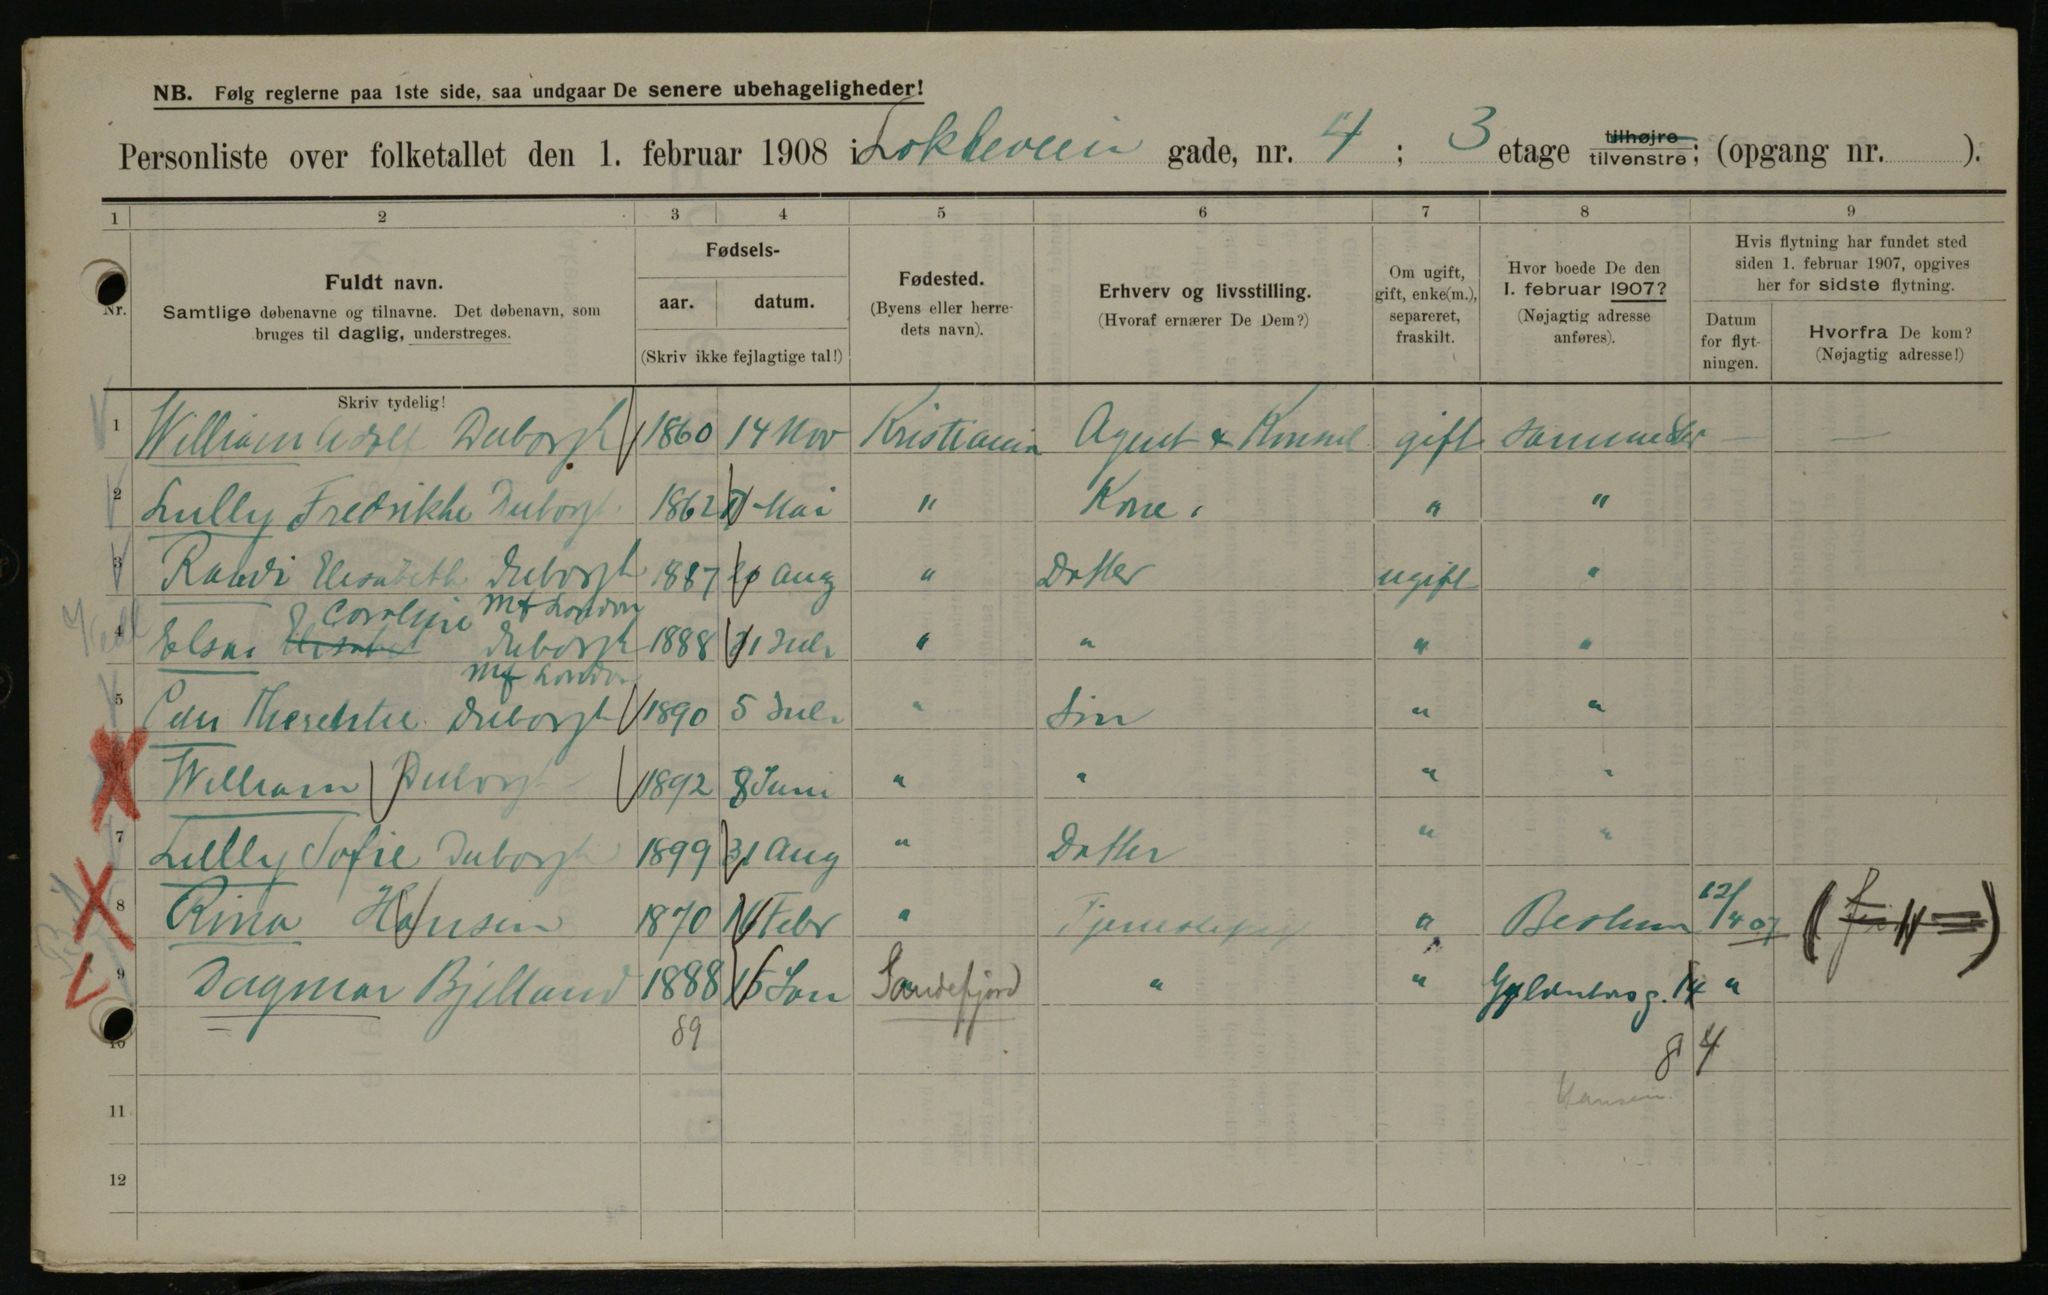 NB. Følg reglerne paa 1ste side, saa undgaar De senere ubehageligheder!
Personliste over folketallet den 1. februar 1908 i Løkkeveien gade, nr. 4 ; 3 etage tilhøjre tilvenstre; (opgang nr. ).
1 2 3 4 5 6 7 8 9
Nr.
Fuldt navn.
Samtlige døbenavne og tilnavne. Det døbenavn, som
bruges til daglig, understreges.
Fødsels-
aar. datum.
(Skriv ikke fejlagtige tal!)
Fødested.
(Byens eller herre-
dets navn).
Erhverv og livsstilling.
(Hvoraf ernærer De Dem?)
Om ugift,
gift, enke(m.),
separeret,
fraskilt.
Hvor boede De den
1. februar 1907?
(Nøjagtig adresse
anføres).
Hvis flytning har fundet sted
siden 1. februar 1907, opgives
her for sidste flytning.
Datum
for flyt-
ningen.
Hvorfra De kom?
(Nøjagtig adresse!)
Skriv tydelig!
1 William Adolf Duborgh 1860 14 Nov Kristiania Agent & Konsul gift sammested — —
2 Lully Fredrikke Duborgh 1862 Mai " Kone " "
3 Randi Elisabeth Duborgh 1887 Aug " Datter ugift "
Caroline Mt London
4 Elsa Elisabet Duborgh 1888 Juli " " " "
London
5 Duborgh 1890 5 Juli " Søn " "
6 William Duborgh 1892 8 Juni " " " "
7 Lully Sofie Duborgh 1899 31 Aug " Datter " "
8 Rina Hansen 1870 16 Febr " Tjenestepige " Bestum 12/4 07
9 Dagmar Bjelland 1888 15 Jan Sandefjord " " Gyldenløvesg. 14 "
89
10
84
Hansen
11
12